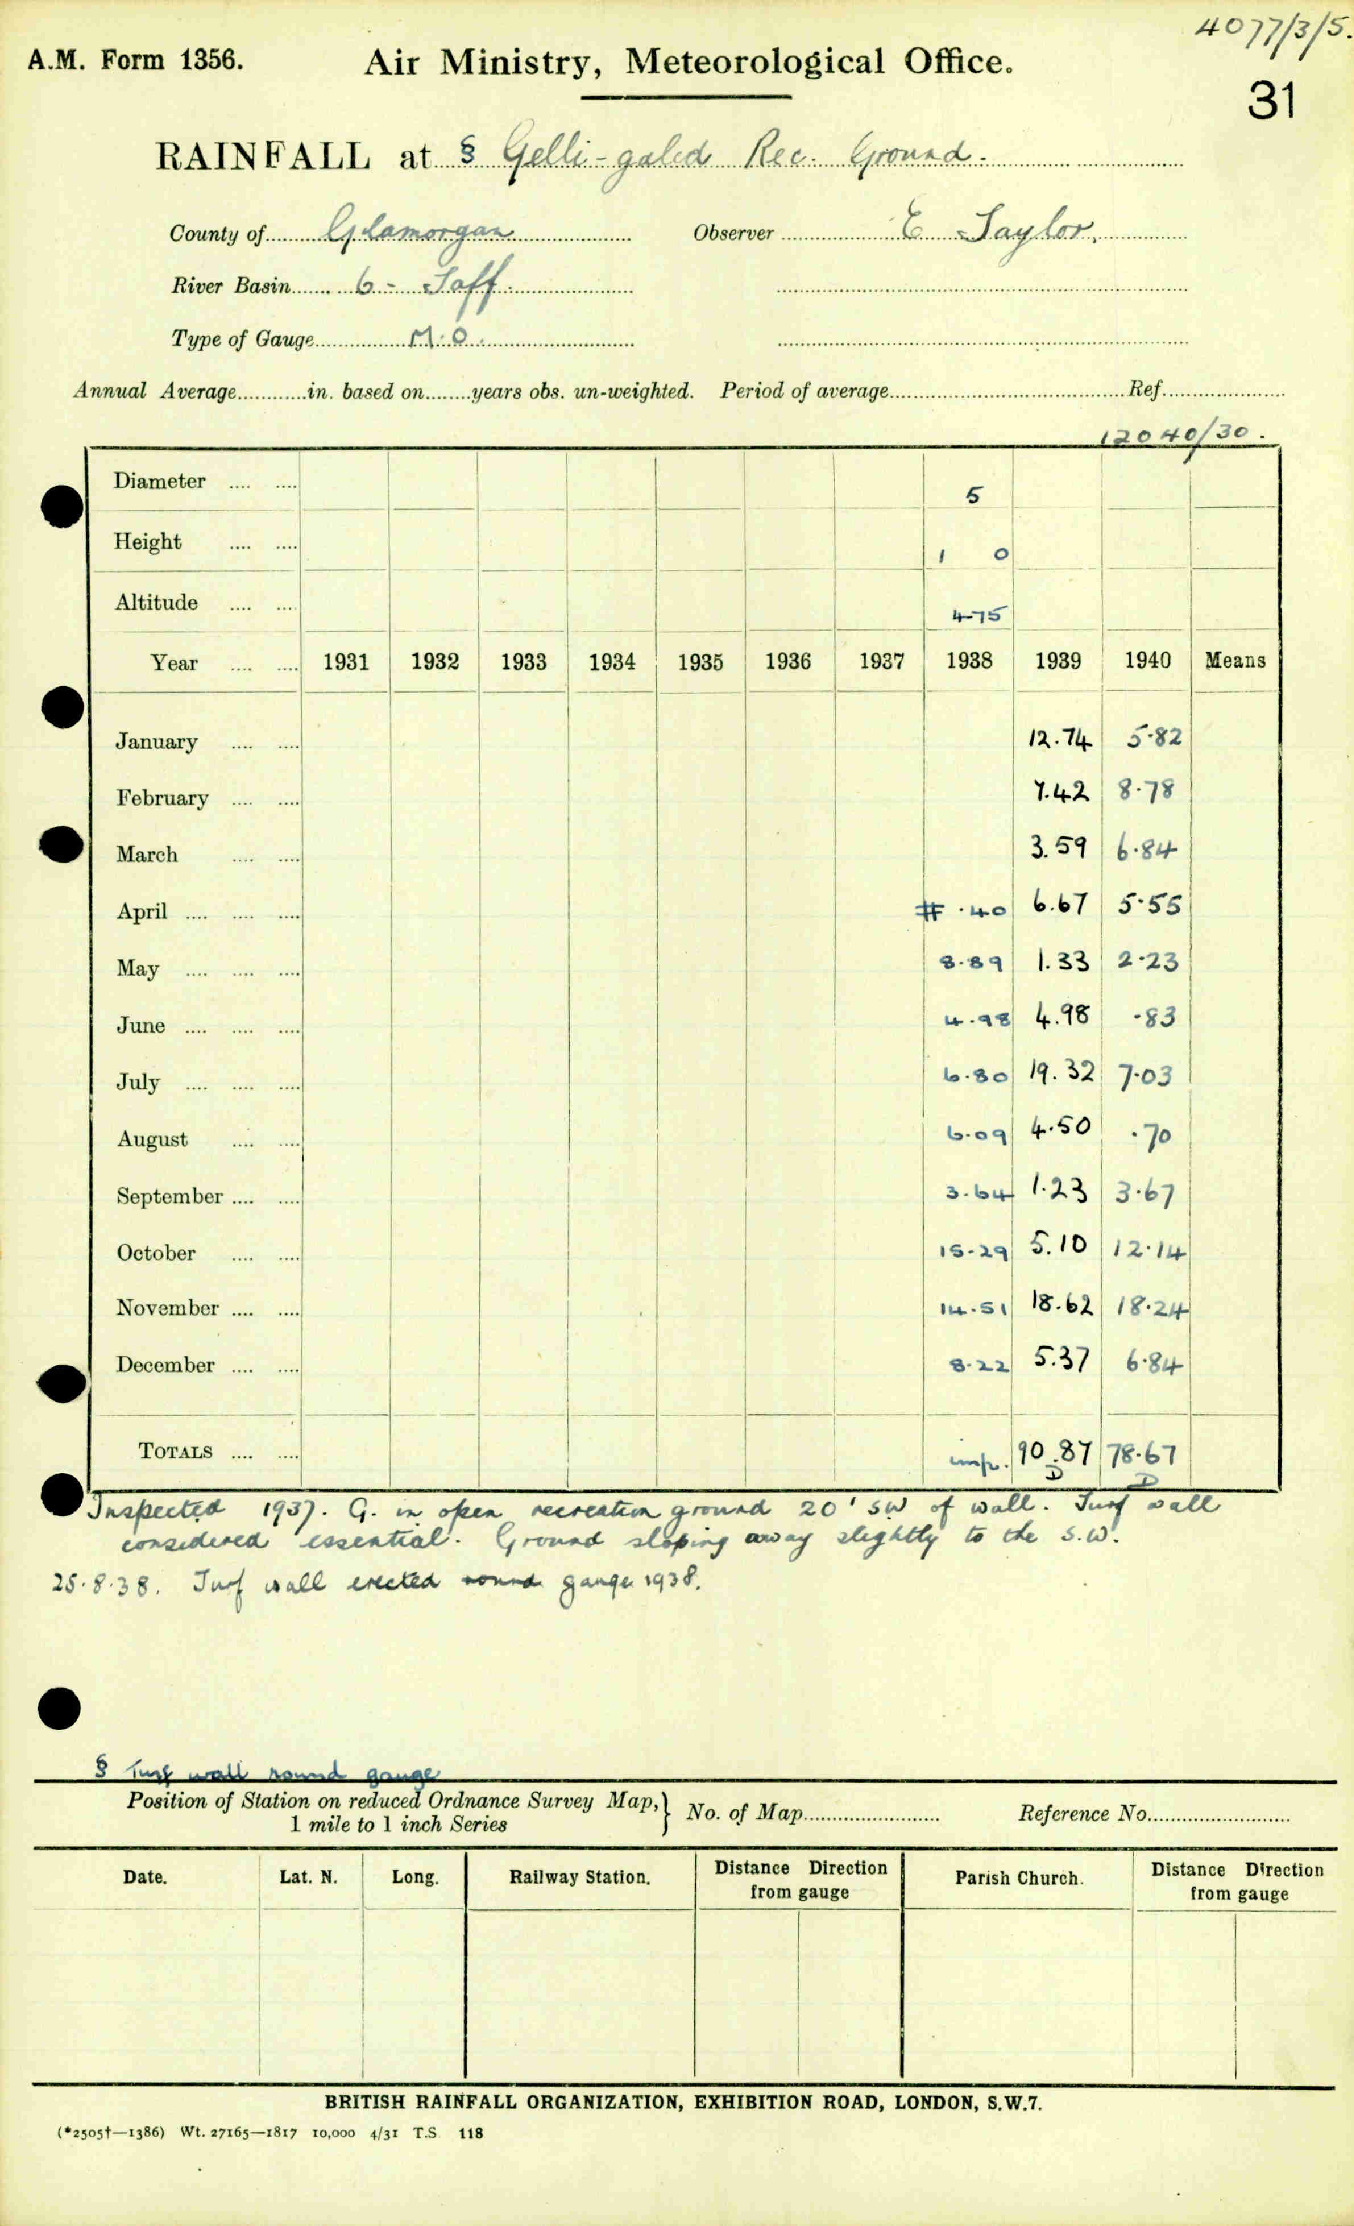 4077/3/5.
A.M. Form 1356. Air Ministry, Meteorological Office.
31
RAINFALL at § Gelli-galed Rec. Ground.
County of Glamorgan Observer E Taylor.
River Basin 6 - Taff.
Type of Gauge M.O.
Annual Average............in. based on........years obs. un-weighted. Period of average.......... Ref..........
12040/30.
Diameter .... .... 5
Height .... .... 1 0
Altitude .... .... 475
Year .... .... 1931 1932 1933 1934 1935 1936 1937 1938 1939 1940 Means
January .... .... 12.74 5.82
February .... .... 7.42 8.78
March .... .... 3.59 6.84
April .... .... .... # .40 6.67 5.55
May .... .... .... 8.89 1.33 2.23
June .... .... .... 4.98 4.98 .83
July .... .... .... 6.80 19.32 7.03
August .... .... 6.09 4.50 .70
September .... .... 3.64 1.23 3.67
October .... .... 15.29 5.10 12.14
November .... .... 14.51 18.62 18.24
December .... .... 8.22 5.37 6.84
TOTALS .... .... imp. 90.87 78.67
D D
Inspected 1937. G. in open recreation ground 20' SW of wall. Turf wall
considered essential. Ground sloping away slightly to the S.W.
25.8.38. Turf wall erected round gauge 1938.
§ Turf wall round gauge
Position of Station on reduced Ordnance Survey Map, } No. of Map.......... Reference No..........
1 mile to 1 inch Series
Date. Lat. N. Long. Railway Station. Distance Direction from gauge Parish Church. Distance Direction from gauge
BRITISH RAINFALL ORGANIZATION, EXHIBITION ROAD, LONDON, S.W.7.
(*2505†—1386) Wt. 27165—1817 10,000 4/31 T.S 118